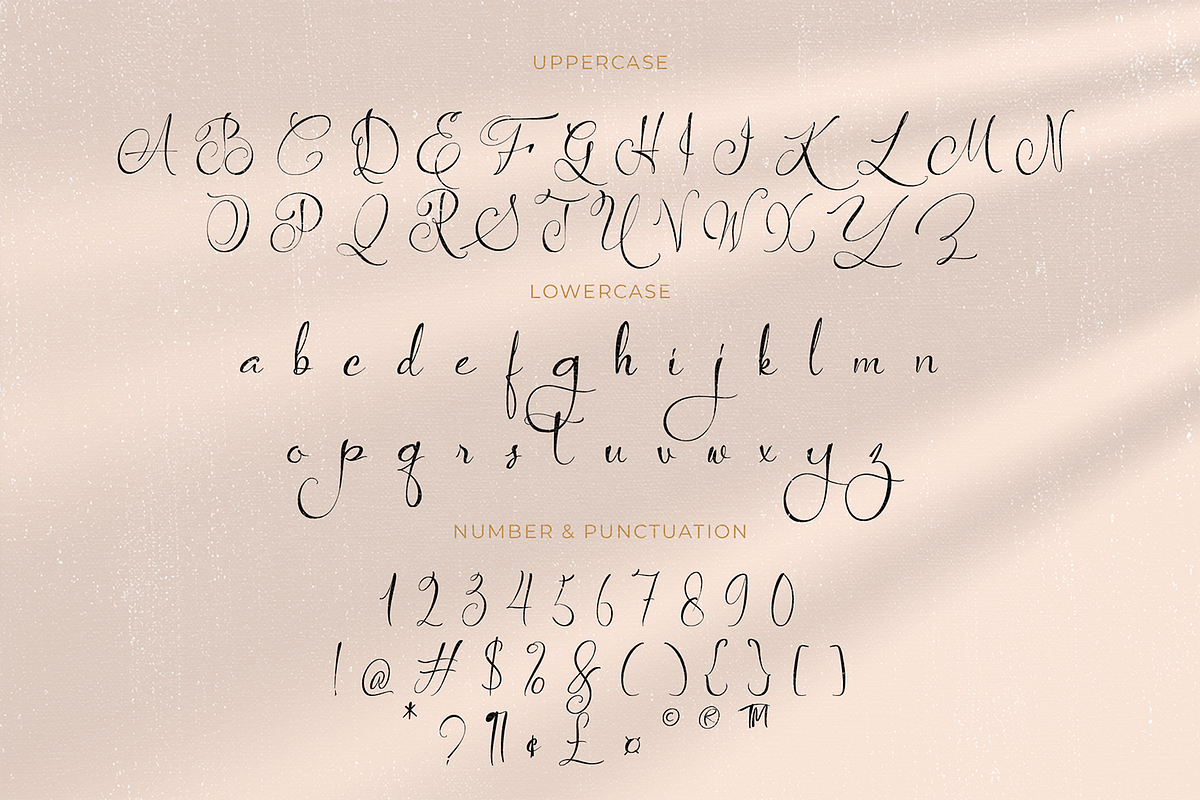 UPPERCASE
A B C D E F G H I J K L M N
O P Q R S T U V W X Y Z
LOWERCASE
a b c d e f g h i j k l m n
o p q r s t u v w x y z
NUMBER & PUNCTUATION
1 2 3 4 5 6 7 8 9 0
! @ # $ % & ( ) { } [ ]
* ? ¶ ¢ £ ¤ © ® ™